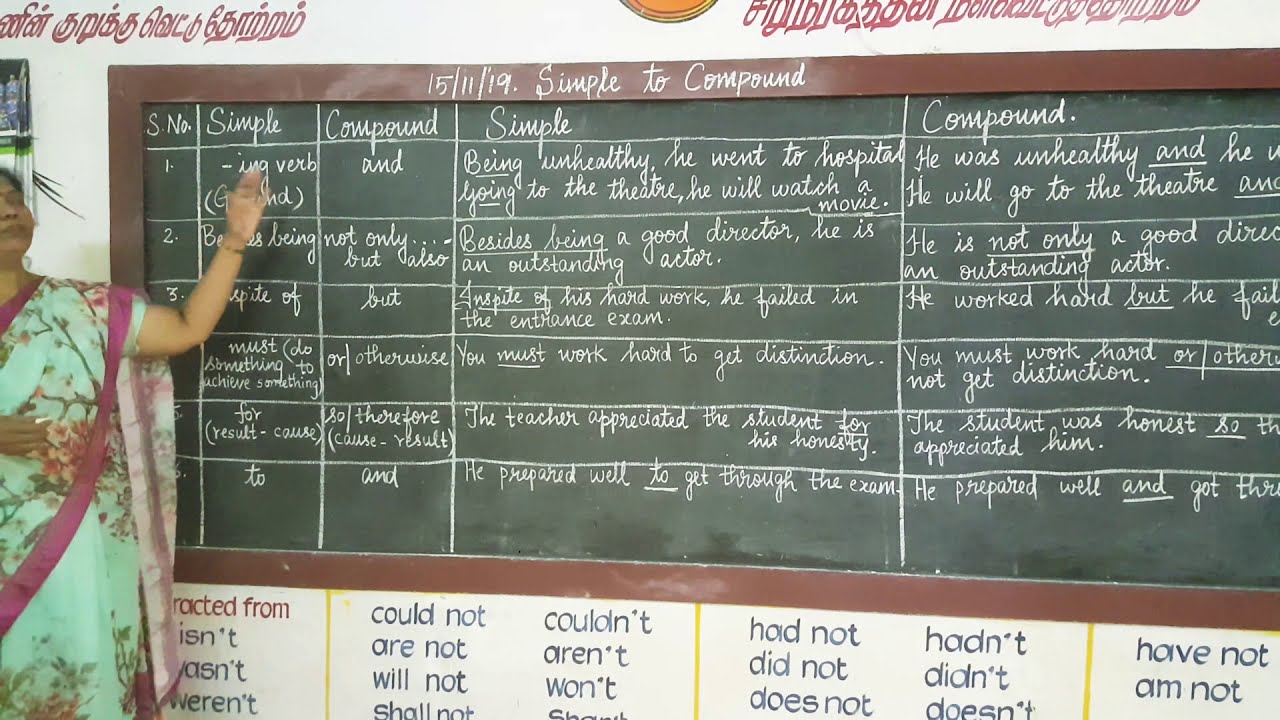 குறுக்கு வெட்டு தோற்றம்
15/11/19. Simple to Compound
S.No. Simple Compound Simple Compound.
1. -ing verb and Being unhealthy, he went to hospital He was unhealthy and he
Going to the theatre, he will watch a movie. He will go to the theatre and
2. Besides being not only... - but also Besides being a good director, he is He is not only a good
an outstanding actor. an outstanding actor.
3. spite of but Inspite of his hard work, he failed in He worked hard but he
the entrance exam.
must (do something to achieve something) or/otherwise You must work hard to get distinction. You must work hard or/
not get distinction.
5. for so/therefore The teacher appreciated the student for The student was honest so
(result-cause) (cause-result) his honesty. appreciated him.
to and He prepared well to get through the exam. He prepared well and got
racted from
isn't
wasn't
weren't
could not couldn't
are not aren't
will not won't
shall not shan't
had not hadn't
did not didn't
does not doesn't
have not
am not